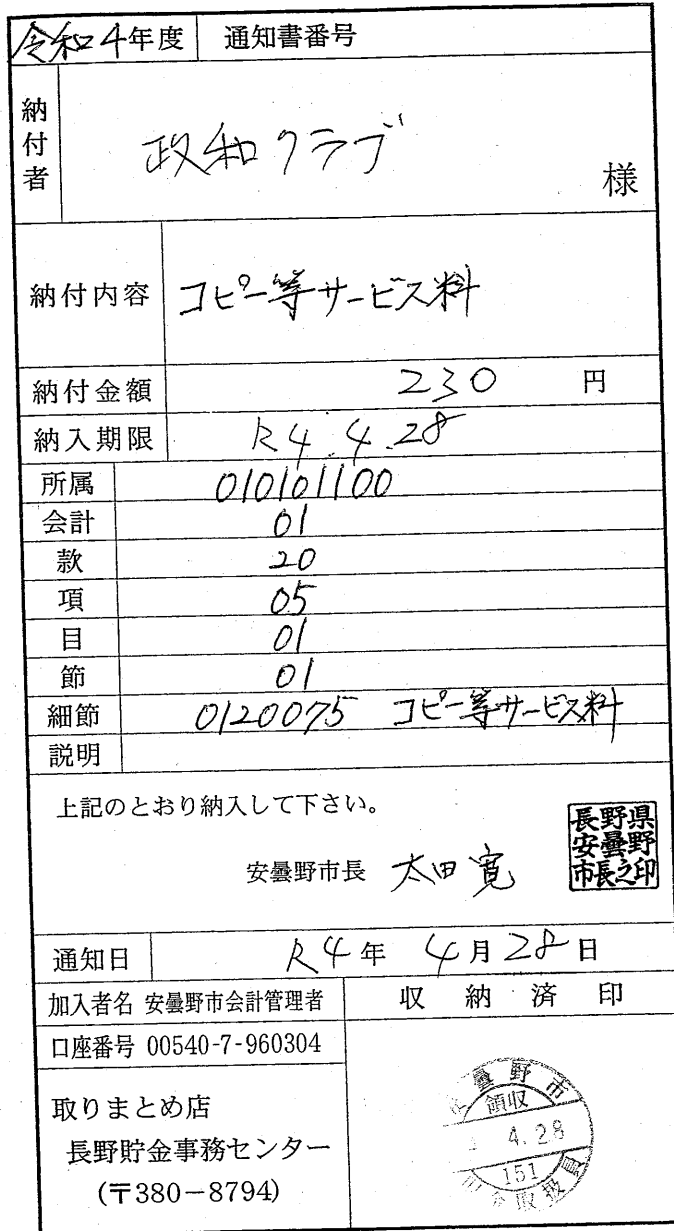 令和4年度 通知書番号
納付者 政和クラブ 様
納付内容 コピー等サービス料
納付金額 230 円
納入期限 R4.4.28
所属 010101100
会計 01
款 20
項 05
目 01
節 01
細節 0120075 コピー等サービス料
説明
上記のとおり納入して下さい。
安曇野市長 太田寛
長野県
安曇野
市長之印
通知日 R4年 4月28日
加入者名 安曇野市会計管理者
収納済印
口座番号 00540-7-960304
取りまとめ店
長野貯金事務センター
(〒380-8794)
曇野市
領収
4.28
151
金取扱員